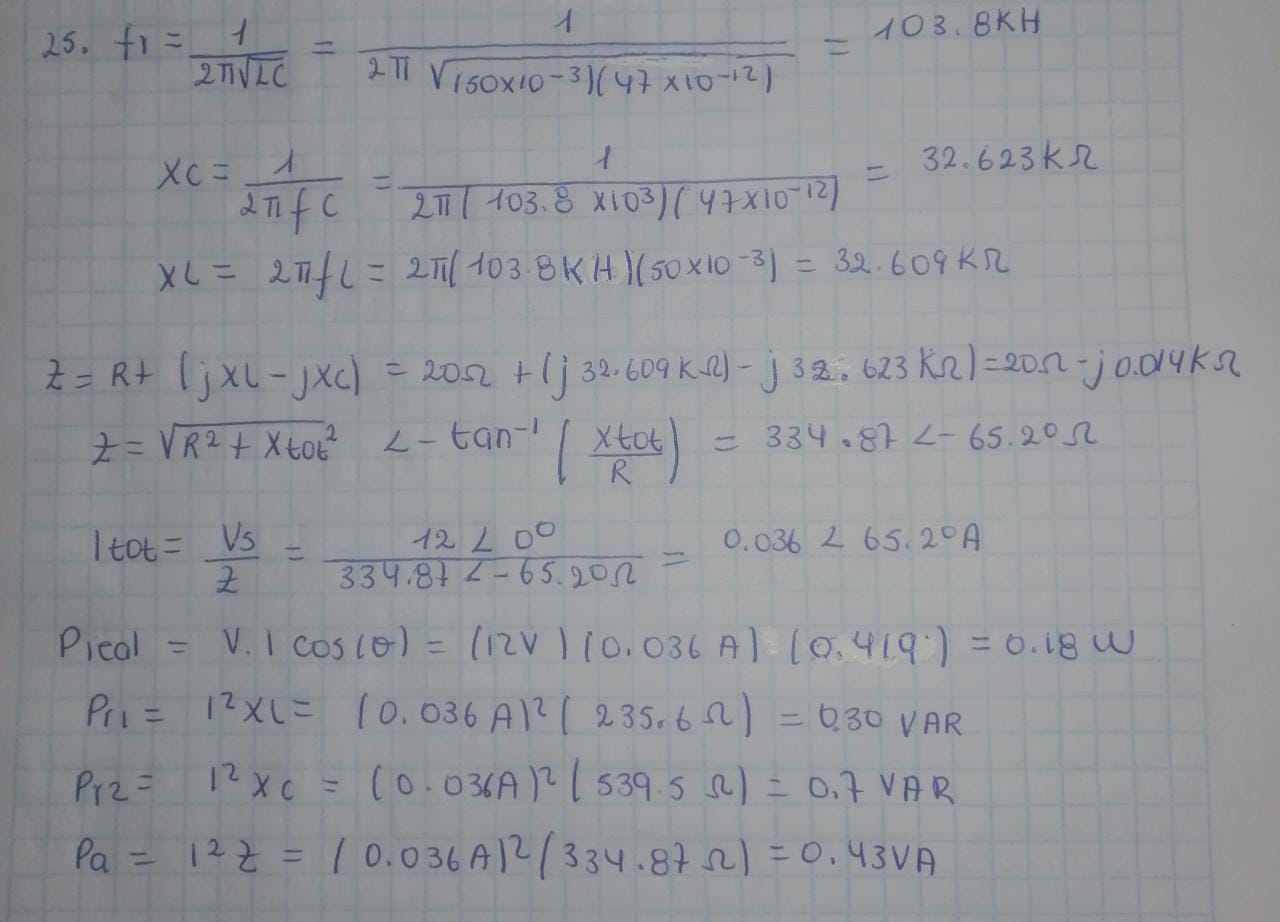 25. fr = 1/(2π√LC) = 1/(2π √(50x10-3)(47x10-12)) = 103.8KH
XC = 1/(2πfC) = 1/(2π(103.8 x103)(47x10-12)) = 32.623KΩ
XL = 2πfL = 2π(103.8KH)(50x10-3) = 32.609KΩ
Z = R+ (jXL-jXC) = 20Ω + (j32.609KΩ)-j32.623KΩ)=20Ω-j0.014KΩ
Z = √R²+Xtot² ∠-tan-¹ (Xtot/R) = 334.87∠-65.2ºΩ
Itot = Vs/Z = 12∠0º/334.87∠-65.2ºΩ = 0.036∠65.2ºA
Preal = V.I cos(θ) = (12V)(0.036A)(0.419) = 0.18W
Pr1 = I²XL = (0.036A)²(235.6Ω) = 0.30 VAR
Pr2 = I²XC = (0.036A)²(539.5Ω) = 0.7 VAR
Pa = I²Z = (0.036A)²(334.87Ω) = 0.43VA